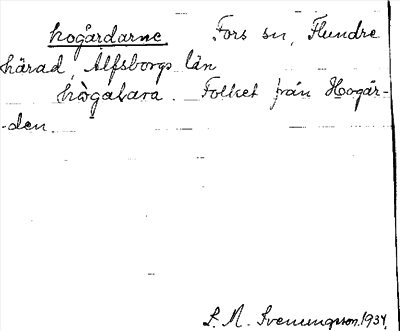 hogårdarne Fors sn, Flundre
härad, Älfsborgs län
hògabara. Folket från Hogår-
-den.
S. M. Svenungsson. 1934.